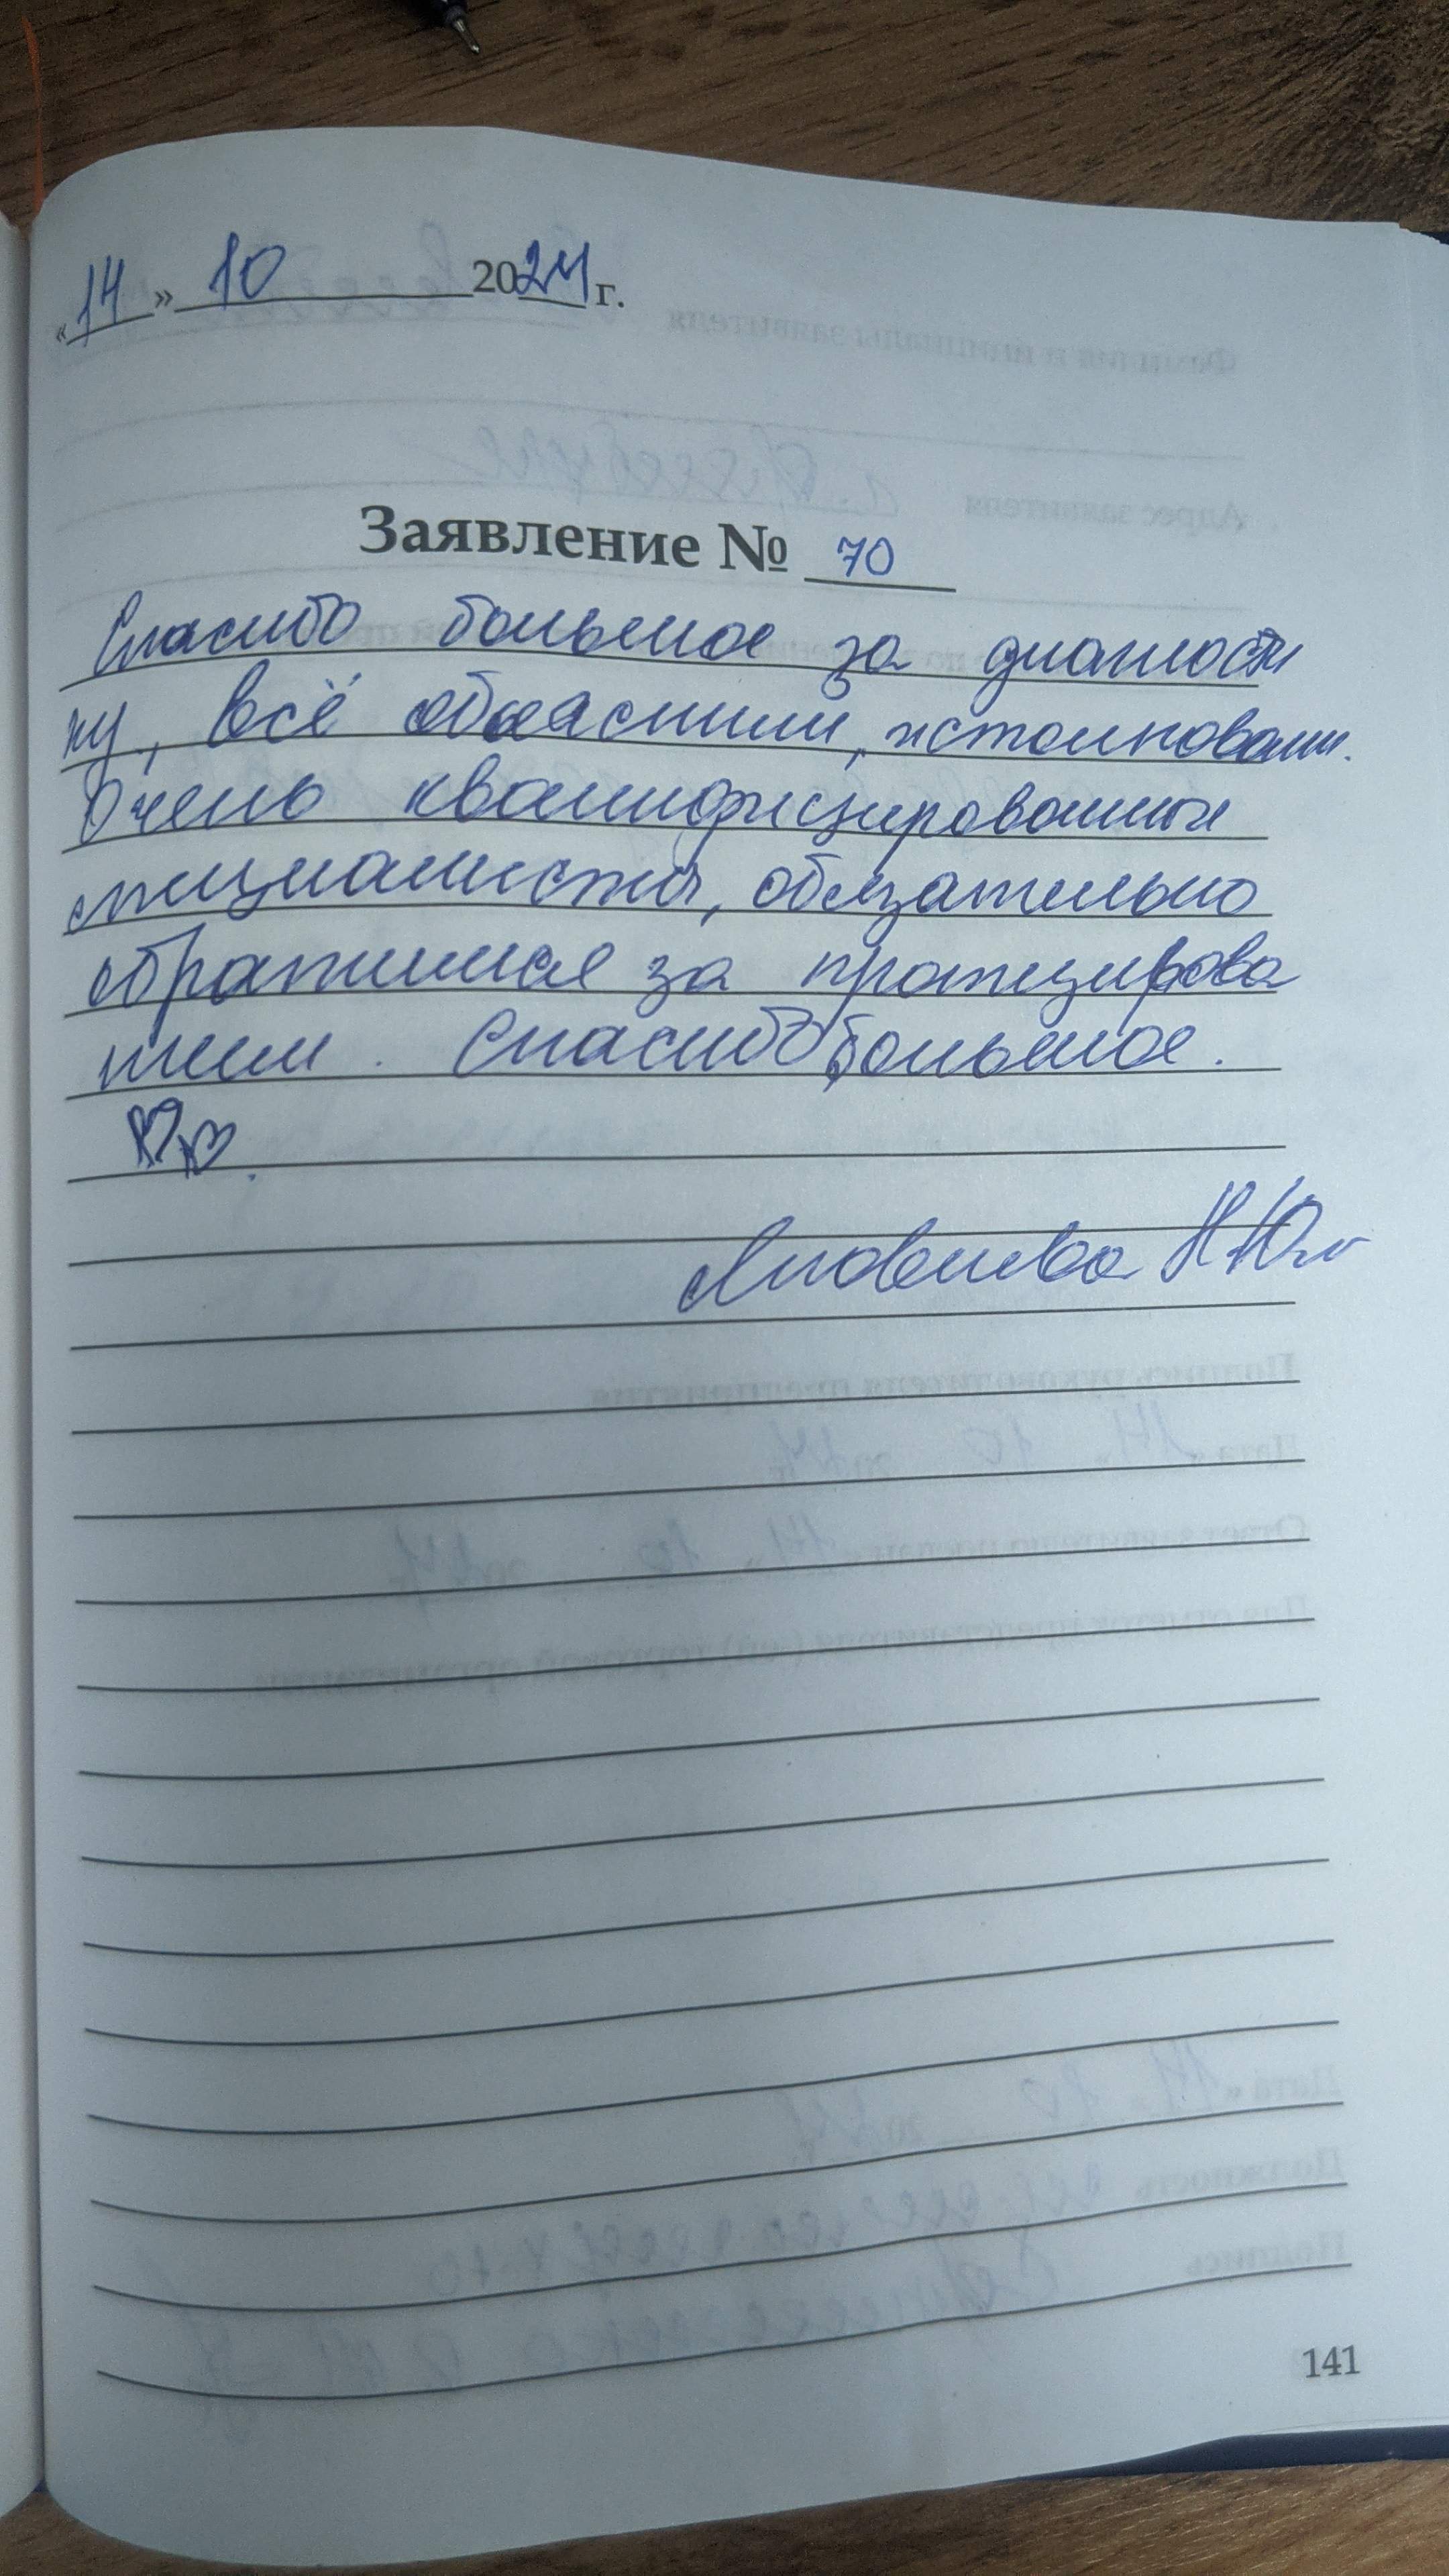 «14» 10 2024 г.
Заявление № 70
Спасибо большое за диагности
ку, всё объяснили, истолковали.
Очень квалифицированные
специалисты, обязательно
обратимся за протезирова
нием. Спасибо большое.
♡♡.
Н.Ю.
141